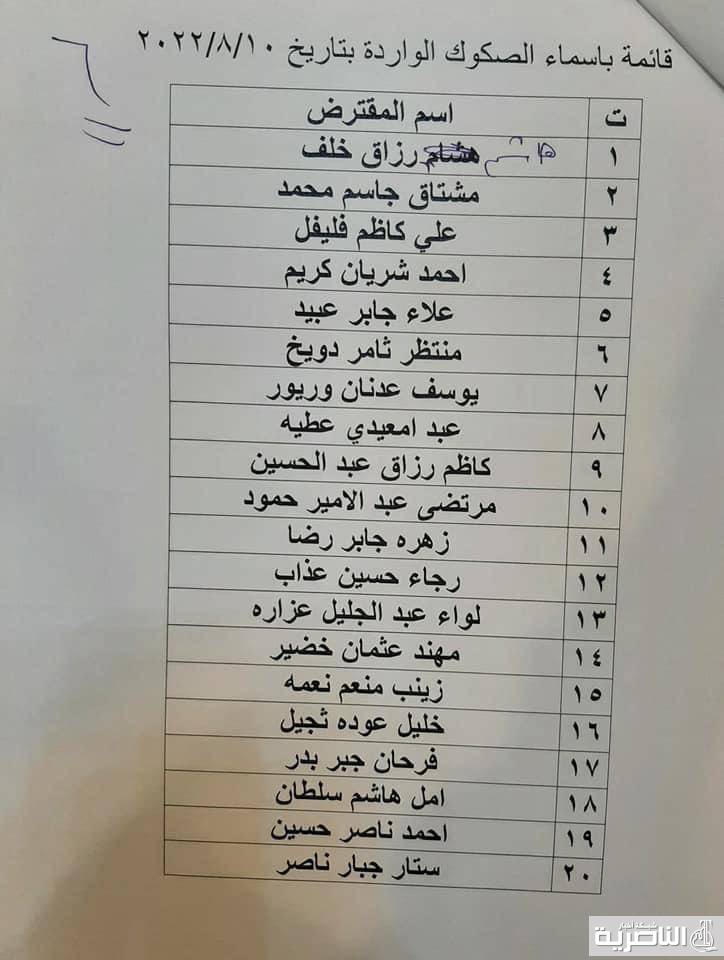 قائمة باسماء الصكوك الواردة بتاريخ ٢٠٢٢/٨/١٠
٦
ت اسم المقترض
١ هاشم هشام رزاق خلف
٢ مشتاق جاسم محمد
٣ علي كاظم فليفل
٤ احمد شريان كريم
٥ علاء جابر عبيد
٦ منتظر ثامر دويخ
٧ يوسف عدنان وريور
٨ عبد امعيدي عطيه
٩ كاظم رزاق عبد الحسين
١٠ مرتضى عبد الامير حمود
١١ زهره جابر رضا
١٢ رجاء حسين عذاب
١٣ لواء عبد الجليل عزاره
١٤ مهند عثمان خضير
١٥ زينب منعم نعمه
١٦ خليل عوده ثجيل
١٧ فرحان جبر بدر
١٨ امل هاشم سلطان
١٩ احمد ناصر حسين
٢٠ ستار جبار ناصر
شبكة اخبار
الناصرية